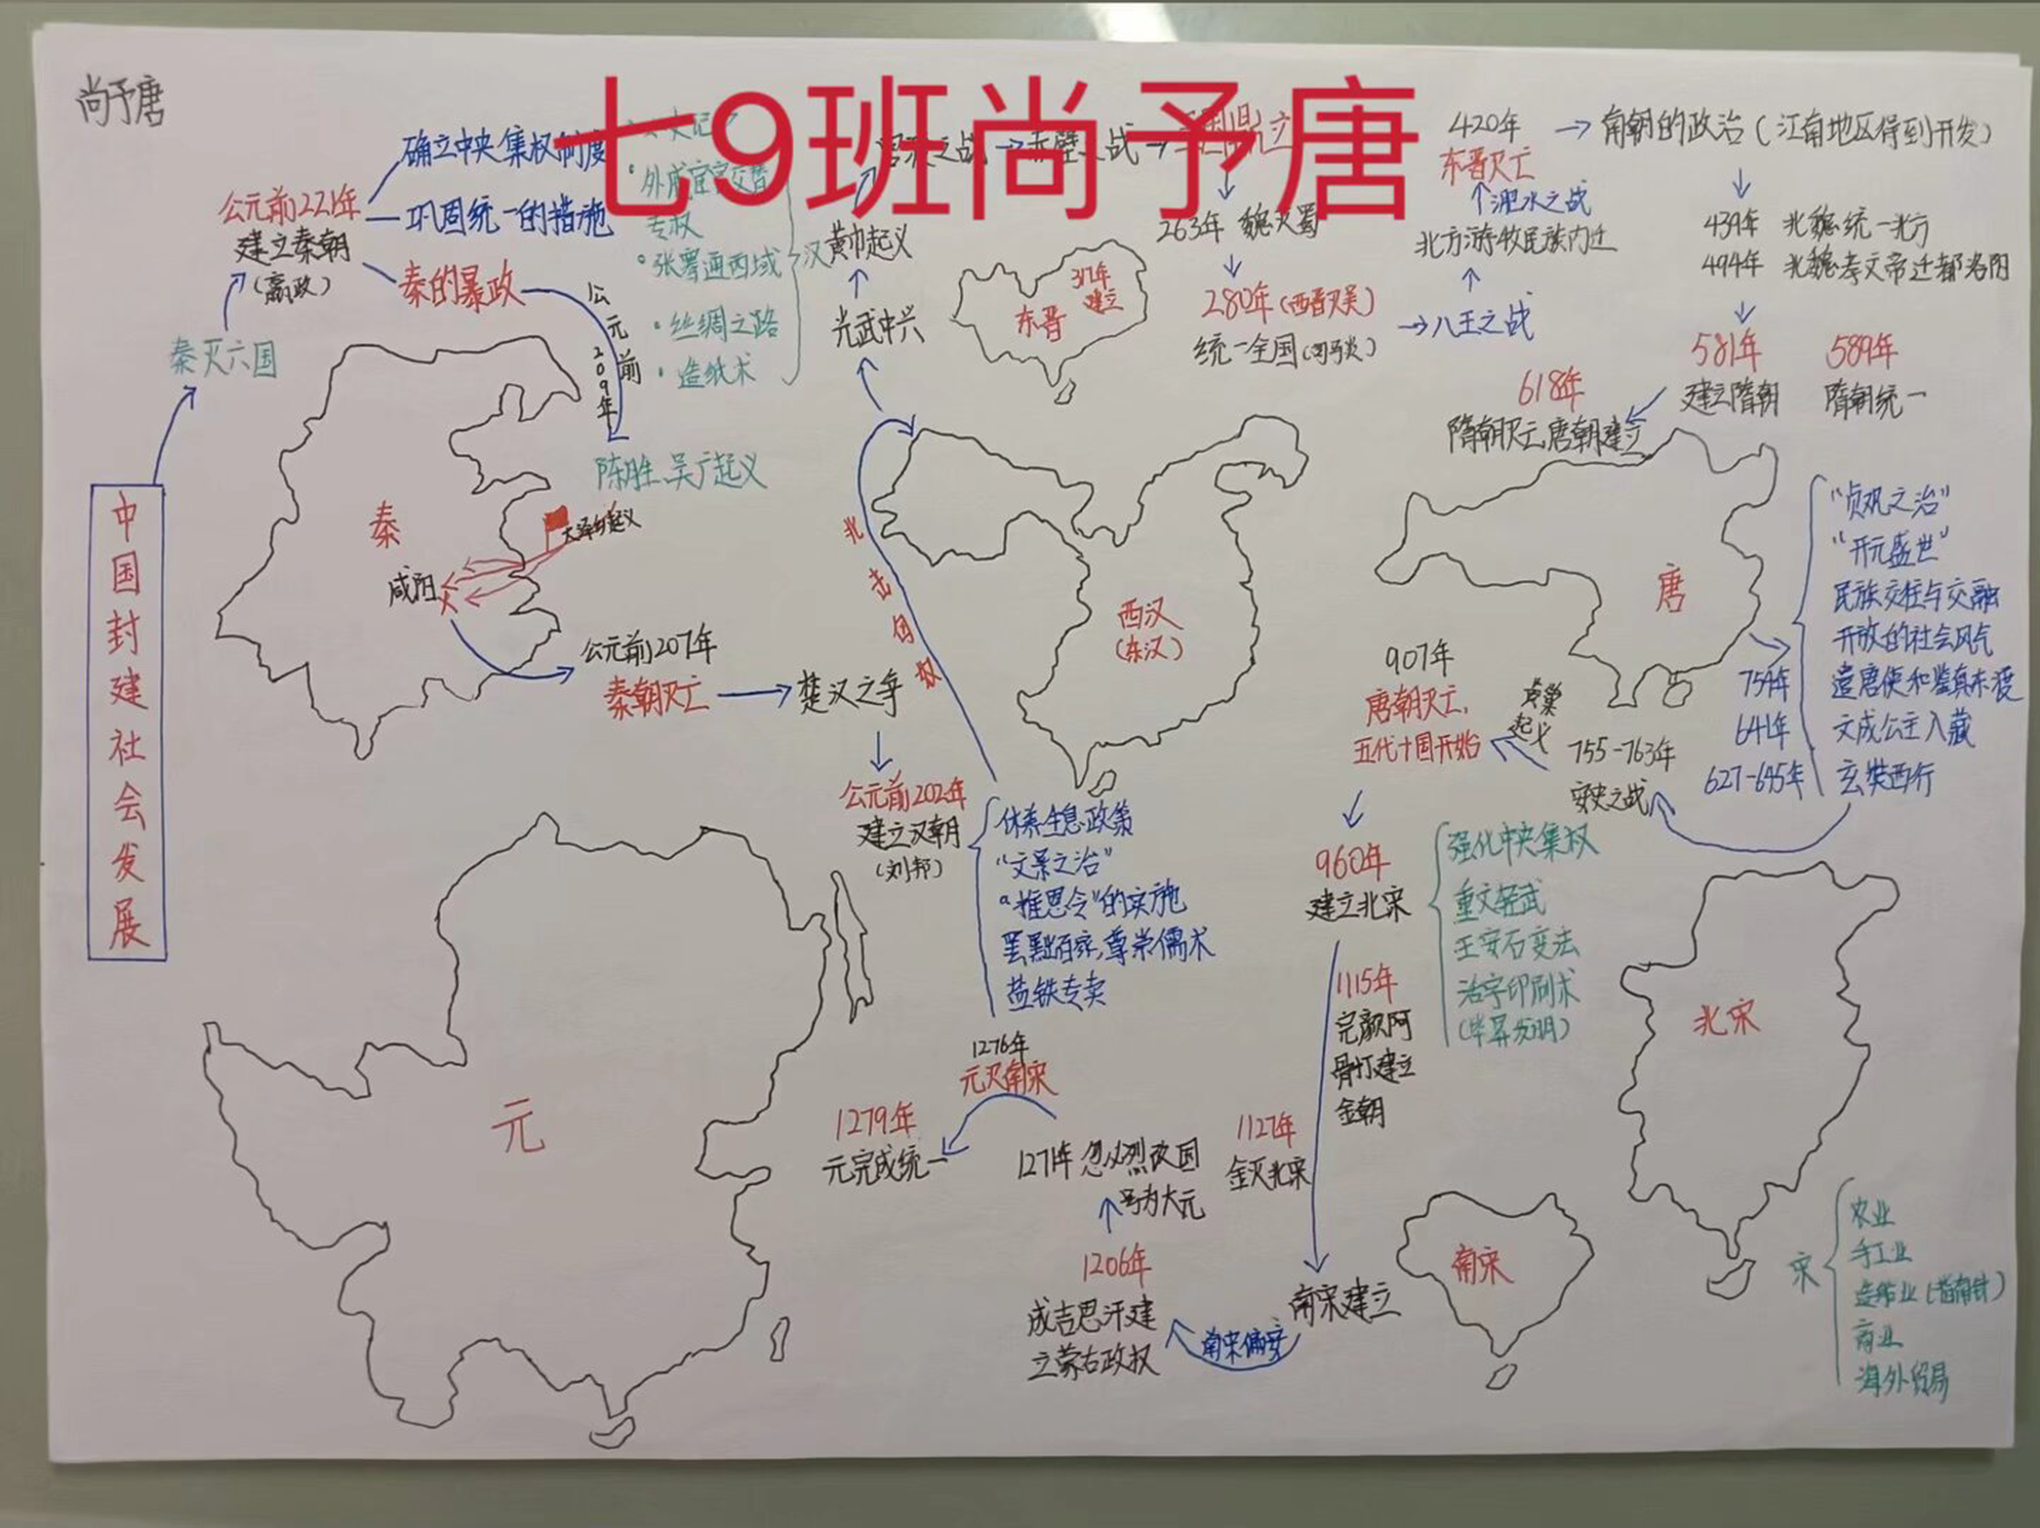 七9班尚予唐
尚予唐
中国封建社会发展
秦灭六国
公元前221年
建立秦朝
(嬴政)
确立中央集权制度
巩固统一的措施
秦的暴政
公元前209年
陈胜、吴广起义
大泽乡起义
秦
咸阳
公元前207年
秦朝灭亡
楚汉之争
公元前202年
建立汉朝
(刘邦)
休养生息政策
"文景之治"
"推恩令"的实施
罢黜百家,尊崇儒术
盐铁专卖
北击匈奴
西汉
(东汉)
·外戚宦官交替
专权
·张骞通西域
·丝绸之路
·造纸术
汉
光武中兴
黄巾起义
263年 魏灭蜀
280年(西晋灭吴)
统一全国(司马炎)
八王之战
北方游牧民族内迁
淝水之战
317年
建立
东晋
420年
东晋灭亡
南朝的政治(江南地区得到开发)
439年 北魏统一北方
494年 北魏孝文帝迁都洛阳
581年
建立隋朝
589年
隋朝统一
618年
隋朝灭亡,唐朝建立
唐
"贞观之治"
"开元盛世"
民族交往与交融
开放的社会风气
754年 遣唐使和鉴真东渡
641年 文成公主入藏
627-645年 玄奘西行
755-763年
安史之战
黄巢
起义
907年
唐朝灭亡,
五代十国开始
960年
建立北宋
强化中央集权
重文轻武
王安石变法
活字印刷术
(毕昇发明)
北宋
1115年
完颜阿
骨打建立
金朝
1127年
金灭北宋
南宋建立
南宋
宋
农业
手工业
造船业(指南针)
商业
海外贸易
南宋偏安
1206年
成吉思汗建
立蒙古政权
1271年 忽必烈改国
号为大元
1276年
元灭南宋
1279年
元完成统一
元